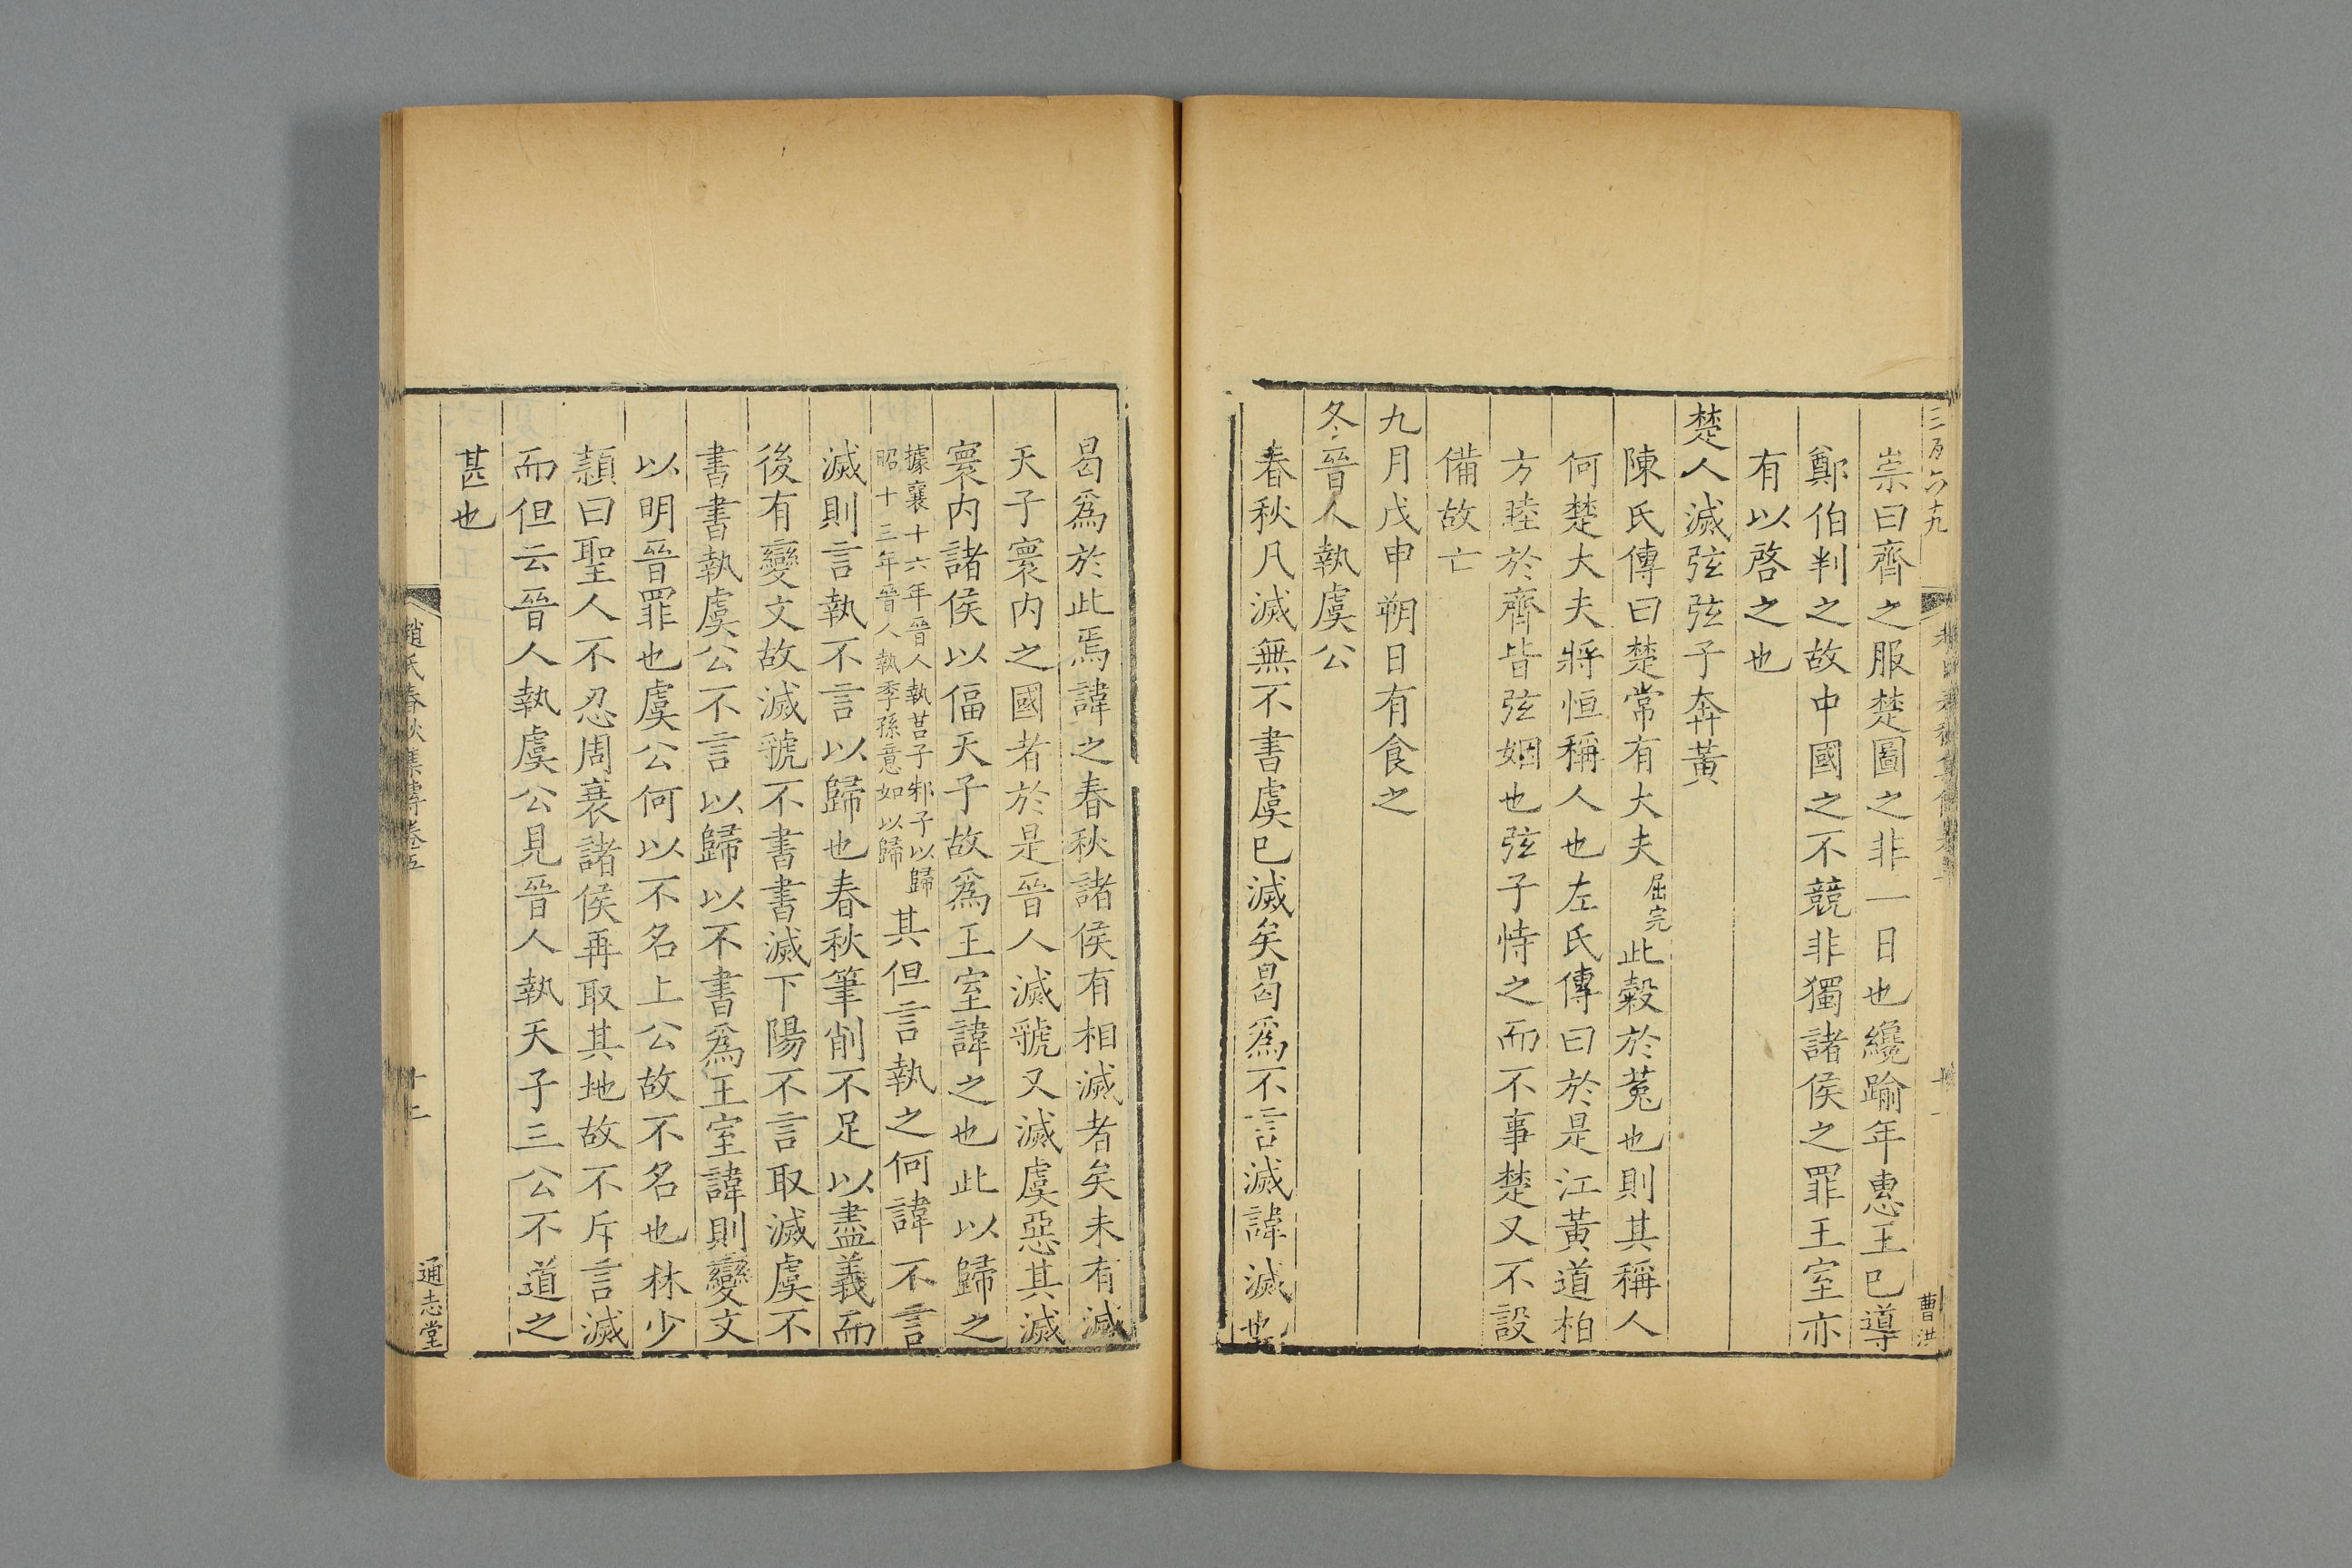 三百六十九
曹洪
崇曰齊之服楚圖之非一日也纔踰年惠王已導
鄭伯判之故中國之不競非獨諸侯之罪王室亦
有以啓之也
楚人滅弦弦子奔黃
陳氏傳曰楚常有大夫屈完此穀於菟也則其稱人
何楚大夫將恒稱人也左氏傳曰於是江黃道柏
方睦於齊皆弦姻也弦子恃之而不事楚又不設
備故亡
九月戊申朔日有食之
冬晉人執虞公
春秋凡滅無不書虞已滅矣曷爲不言滅諱滅也
曷爲於此焉諱之春秋諸侯有相滅者矣未有滅
天子寰內之國者於是晉人滅虢又滅虞惡其滅
寰內諸侯以偪天子故爲王室諱之也此以歸之
據襄十六年晉人執莒子邾子以歸
昭十三年晉人執季孫意如以歸
其但言執之何諱不言
滅則言執不言以歸也春秋筆削不足以盡義而
後有變文故滅虢不書書滅下陽不言取滅虞不
書書執虞公不言以歸以不書爲王室諱則變文
以明晉罪也虞公何以不名上公故不名也林少
頴曰聖人不忍周衰諸侯再取其地故不斥言滅
而但云晉人執虞公見晉人執天子三公不道之
甚也
趙氏春秋集傳卷五
十二
通志堂